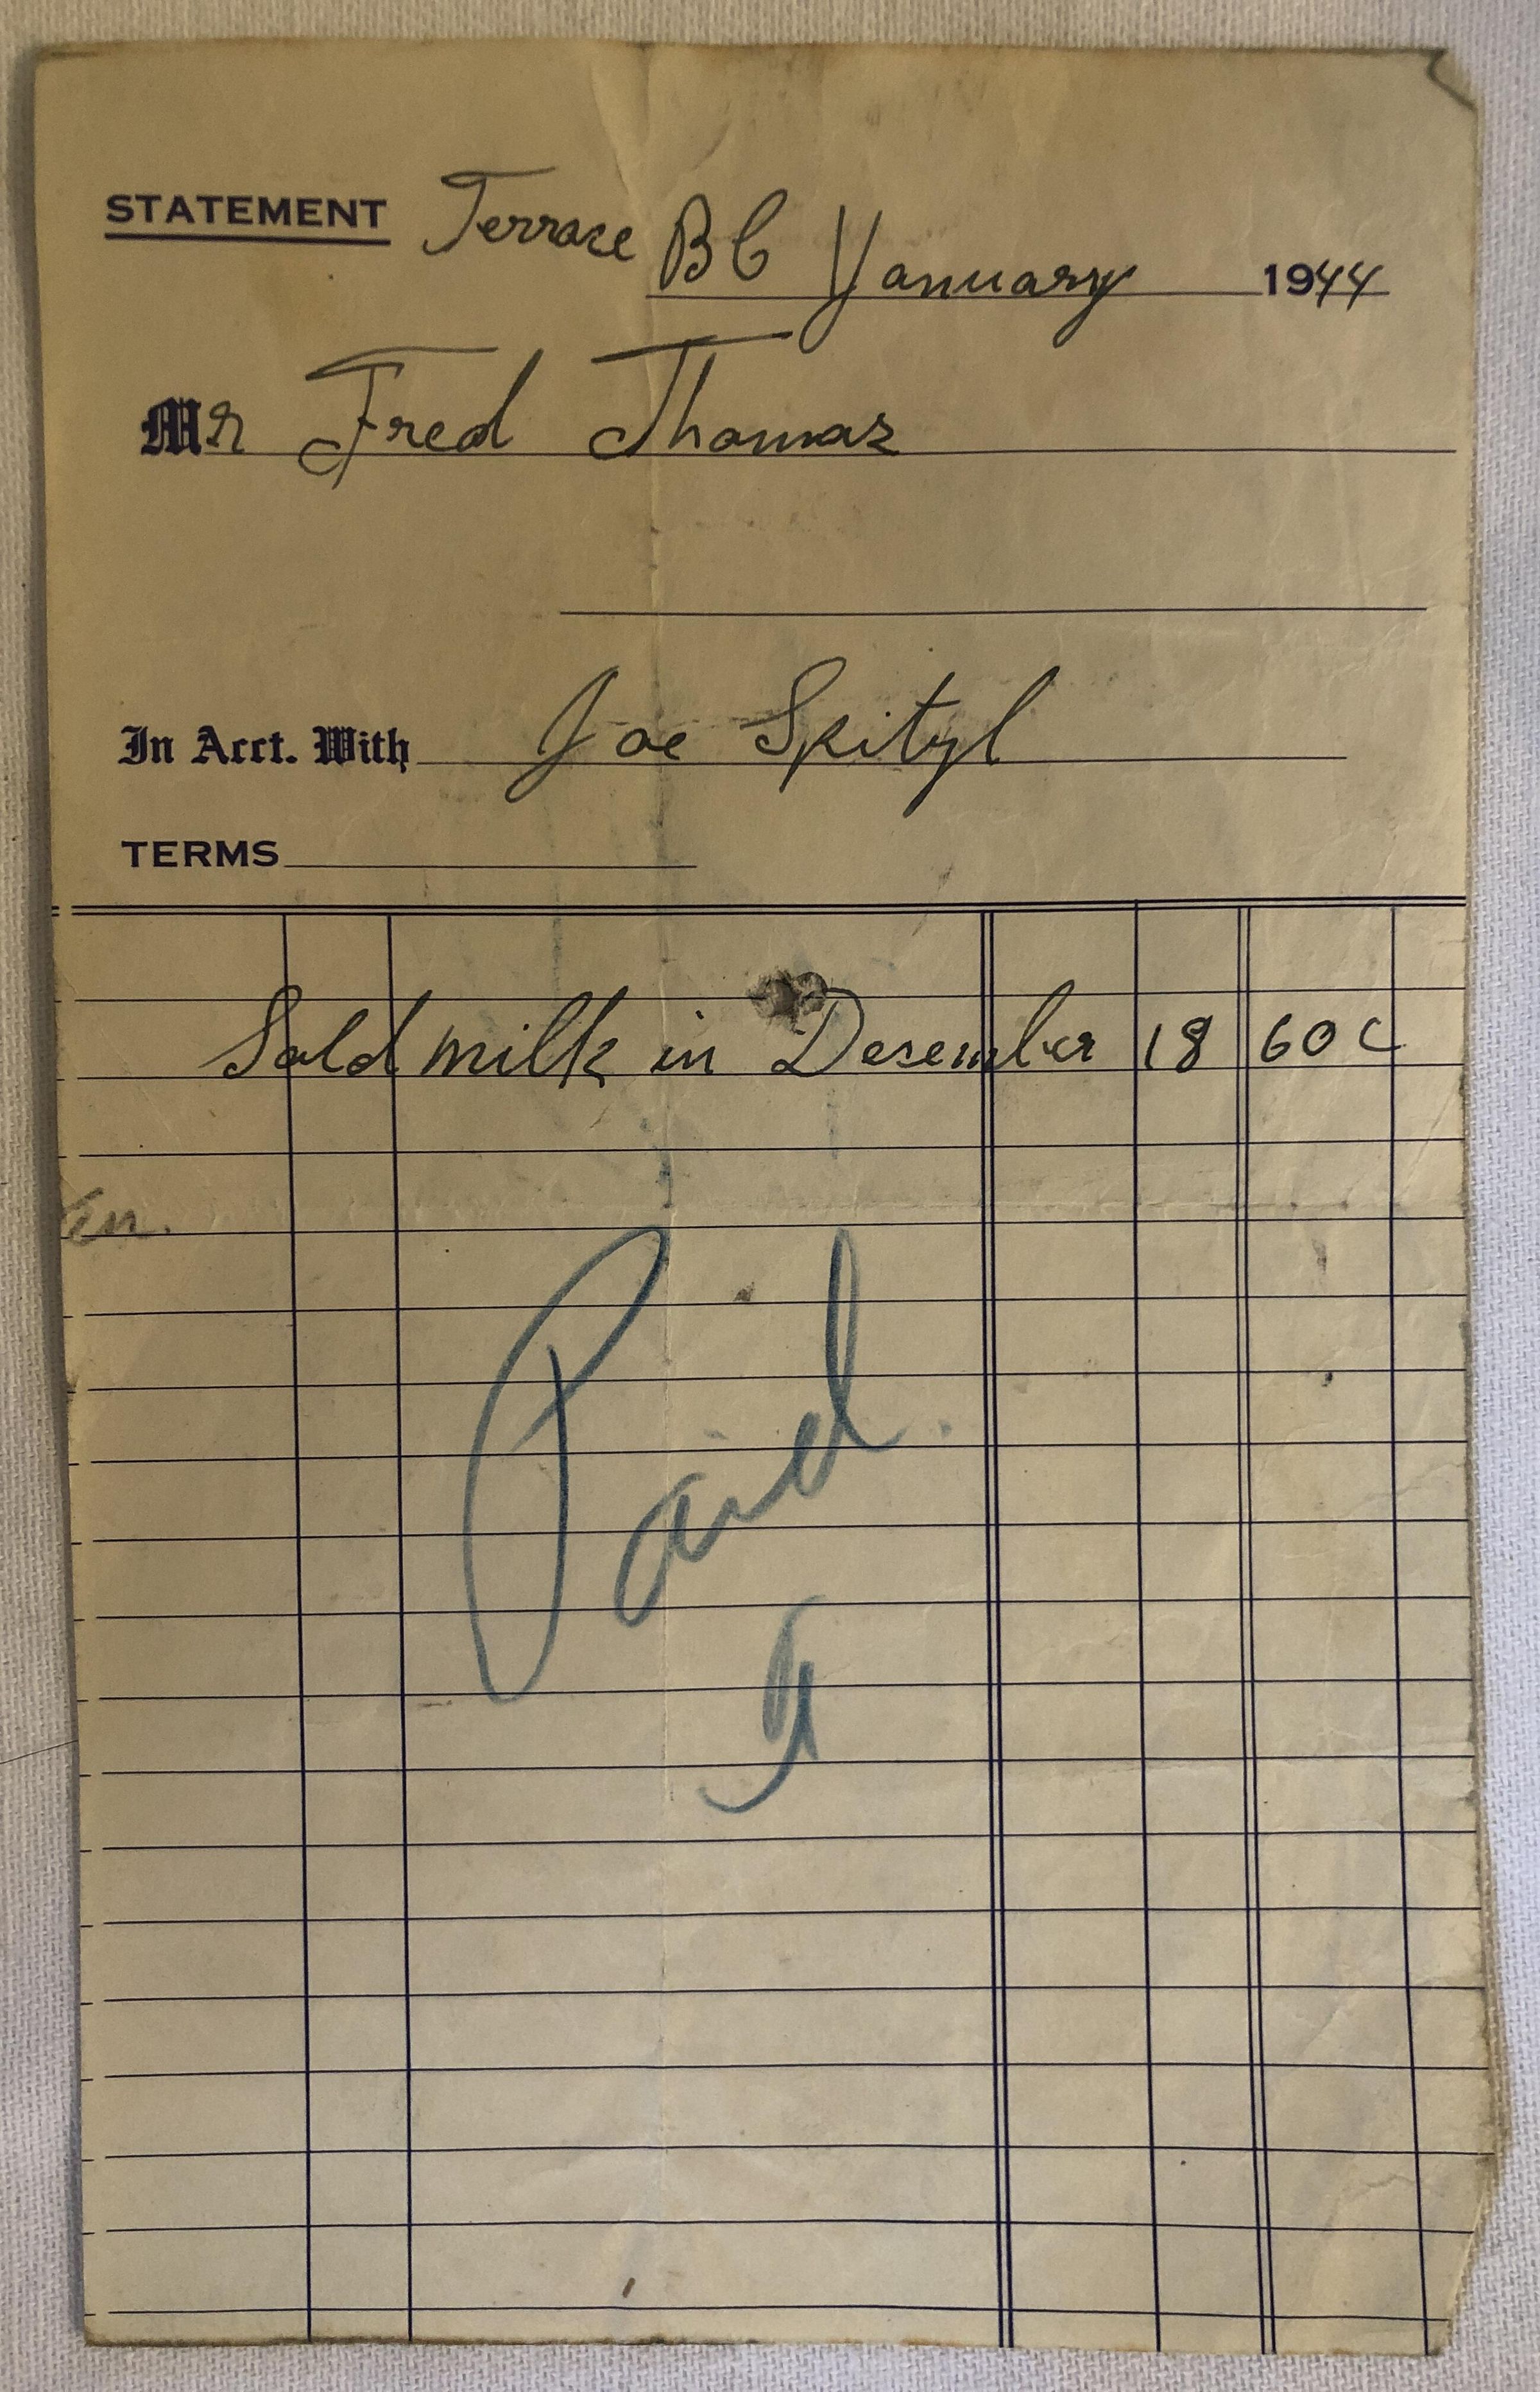 STATEMENT Terrace BC January 1944
Mr Fred Thomas
In Acct. With Joe Spityl
TERMS
Sold milk in Desember 18 60 c
Paid.